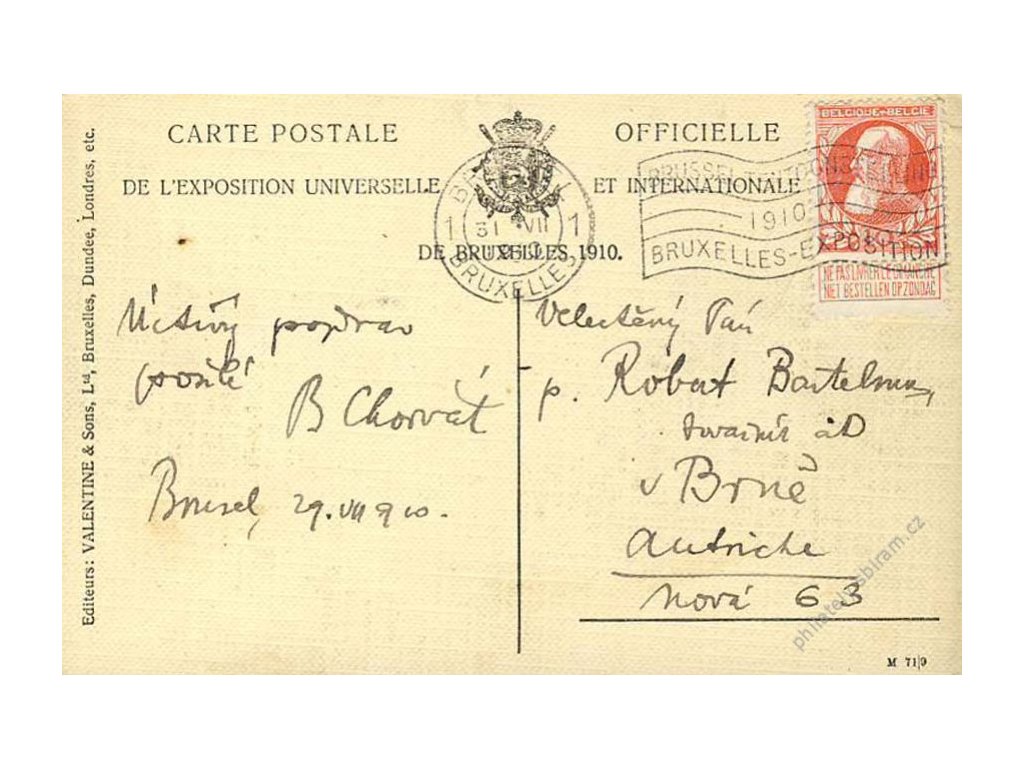 CARTE POSTALE OFFICIELLE
DE L'EXPOSITION UNIVERSELLE ET INTERNATIONALE
DE BRUXELLES 1910.
Editeurs: VALENTINE & Sons, Ltd, Bruxelles, Dundee, Londres, etc.
1 31 VII 1
BRUXELLES
1910
BRUXELLES-EXPOSITION
BELGIQUE-BELGIE
NE PAS LIVRER LE DIMANCHE
NIET BESTELLEN OP ZONDAG
Uctivý pozdrav
posílá
B Chorvát
Brusel, 29. VII 910.
Velectěný Pán
p. Robert Bartelmus,
v Brně
Autriche
Nová 63
M 71/9
philatelysbiram.cz